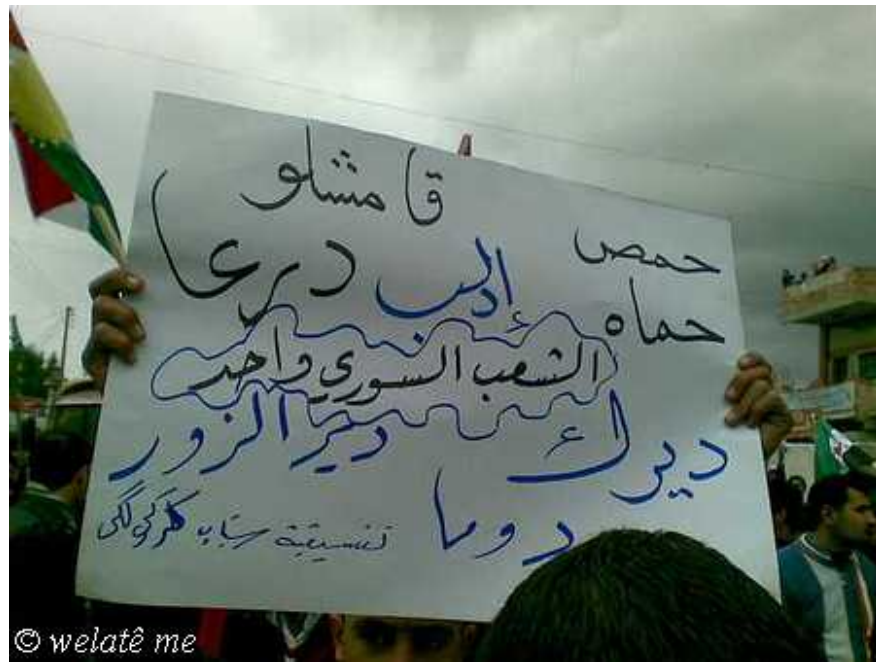 قامشلو
حمص
إدلب
درعا
حماه
الشعب السوري واحد
ديرك
دير الزور
دوما
تنسيقية شباب كركي لكي
© welatê me